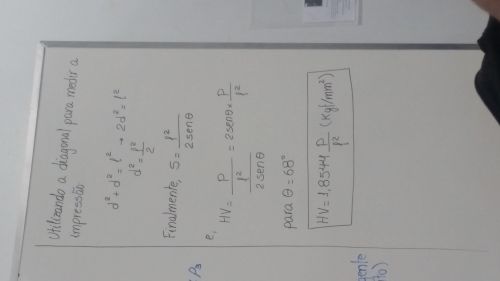 Utilizando a diagonal para medir a
impressão
d² + d² = l² → 2d² = l²
d² = l²/2
Finalmente, S = l²/2senθ
e,
HV = P/(l²/2senθ) = 2senθ × P/l²
para θ = 68°
HV = 1,8544 P/l² (Kgf/mm²)
P₃